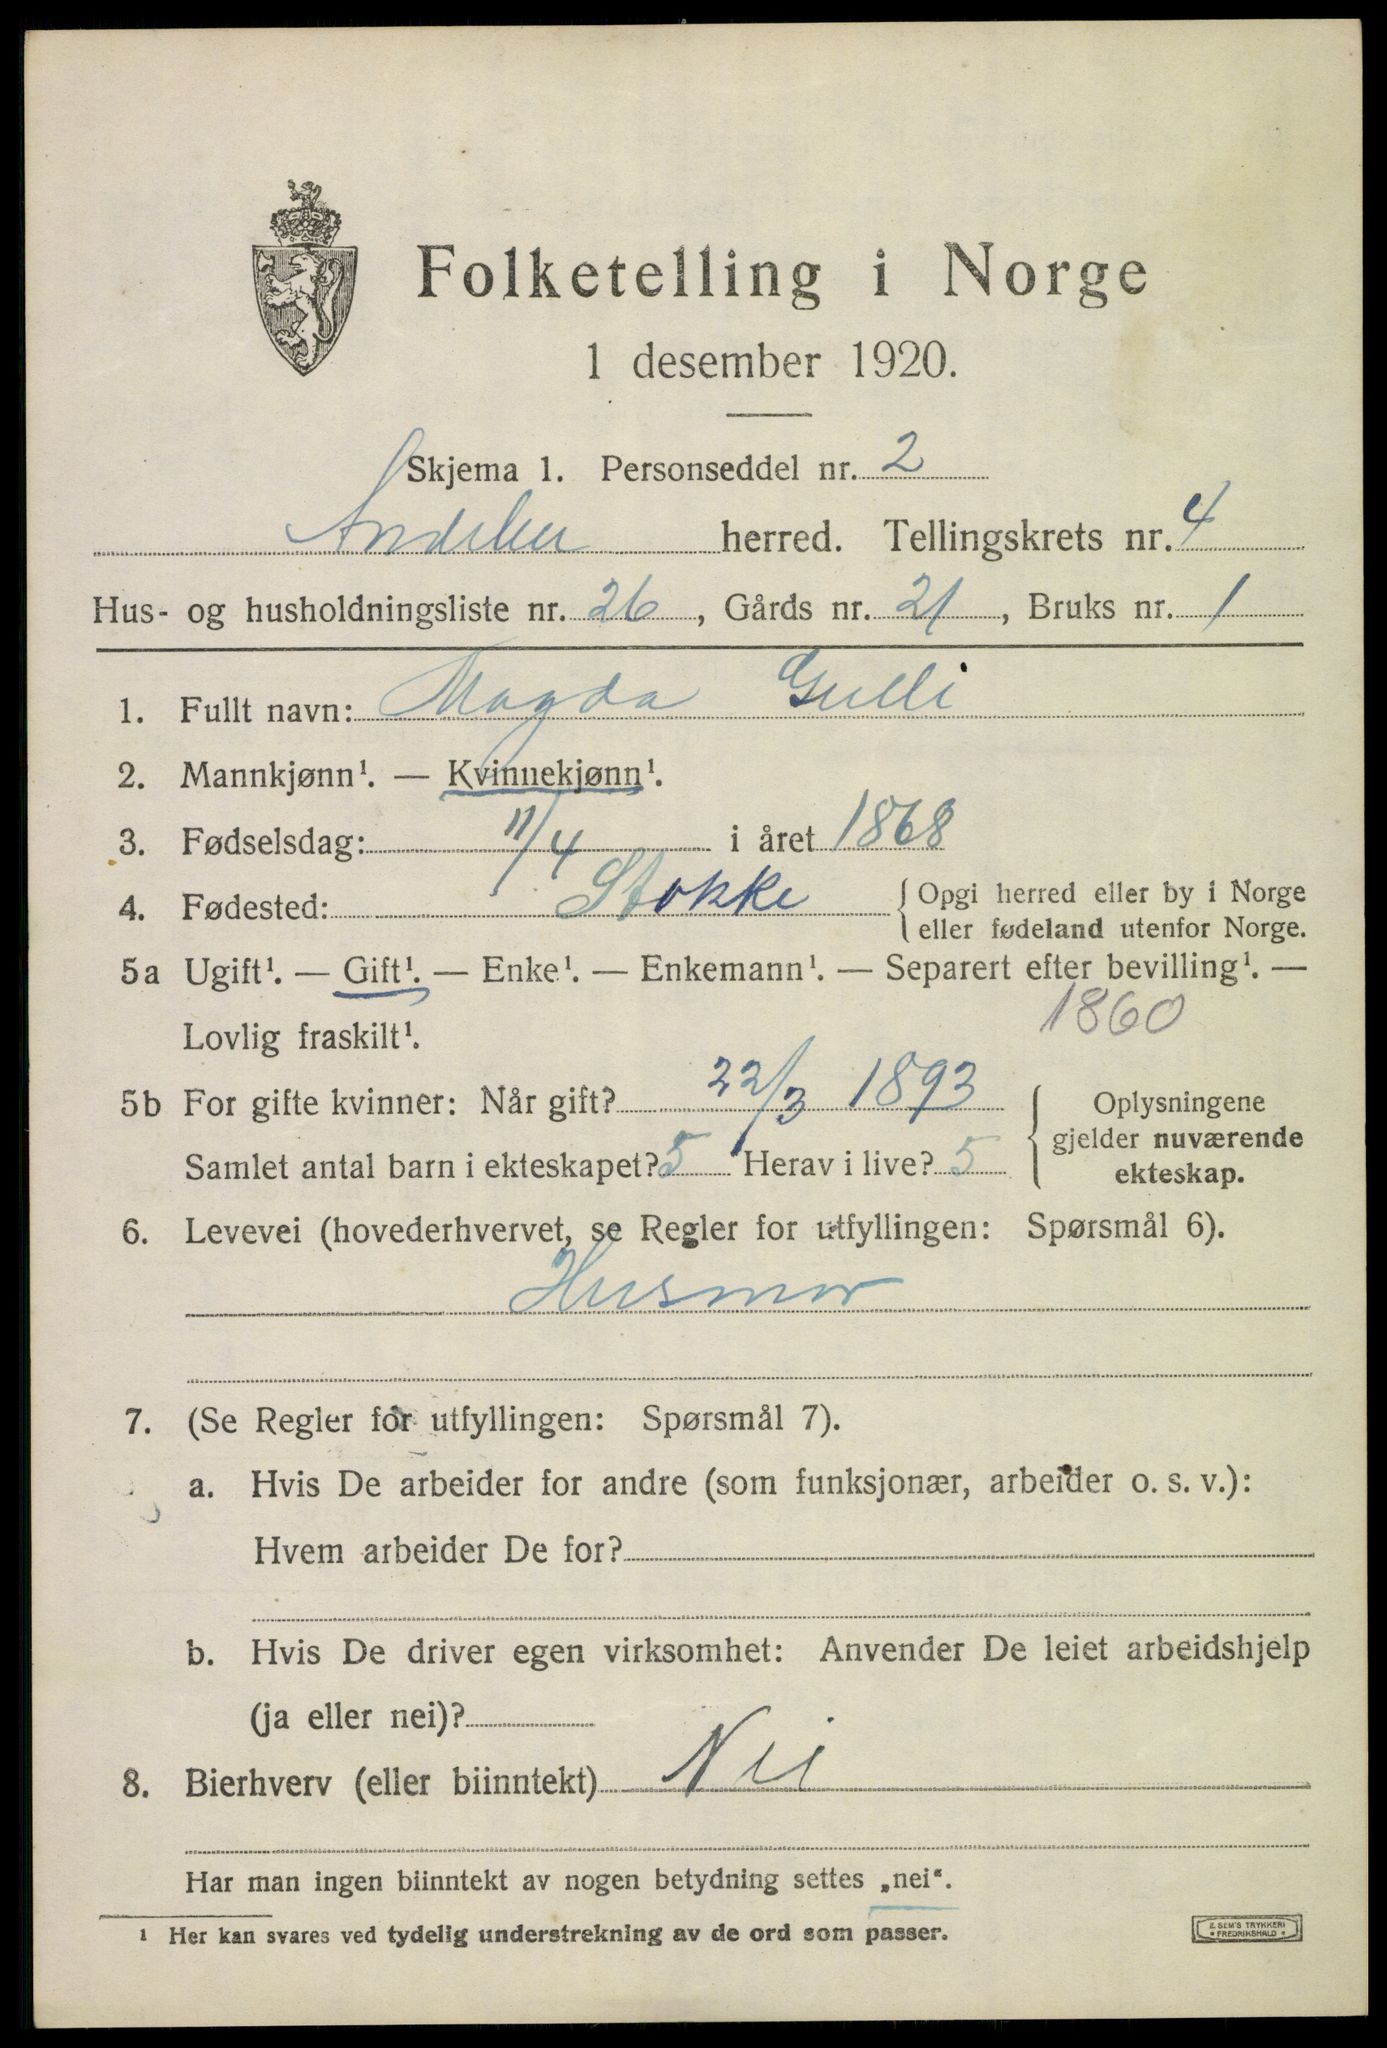 Folketelling i Norge
1 desember 1920.
Skjema 1. Personseddel nr. 2
Andebu herred. Tellingskrets nr. 4
Hus- og husholdningsliste nr. 26, Gårds nr. 21, Bruks nr. 1
1. Fullt navn: Magda Gulli
2. Mannkjønn¹. — Kvinnekjønn¹.
3. Fødselsdag: 11/4 i året 1868
4. Fødested: Stokke { Opgi herred eller by i Norge
eller fødeland utenfor Norge.
5a Ugift¹. — Gift¹. — Enke¹. — Enkemann¹. — Separert efter bevilling¹. —
Lovlig fraskilt¹. 1860
5b For gifte kvinner: Når gift? 22/3 1893 { Oplysningene
gjelder nuværende
Samlet antal barn i ekteskapet? 5 Herav i live? 5
ekteskap.
6. Levevei (hovederhvervet, se Regler for utfyllingen: Spørsmål 6).
Husmor
7. (Se Regler for utfyllingen: Spørsmål 7).
a. Hvis De arbeider for andre (som funksjonær, arbeider o. s. v.):
Hvem arbeider De for?
b. Hvis De driver egen virksomhet: Anvender De leiet arbeidshjelp
(ja eller nei)?
8. Bierhverv (eller biinntekt) Nei
Har man ingen biinntekt av nogen betydning settes „nei“.
¹ Her kan svares ved tydelig understrekning av de ord som passer.
E. SEM'S TRYKKERI
* FREDRIKSHALD *